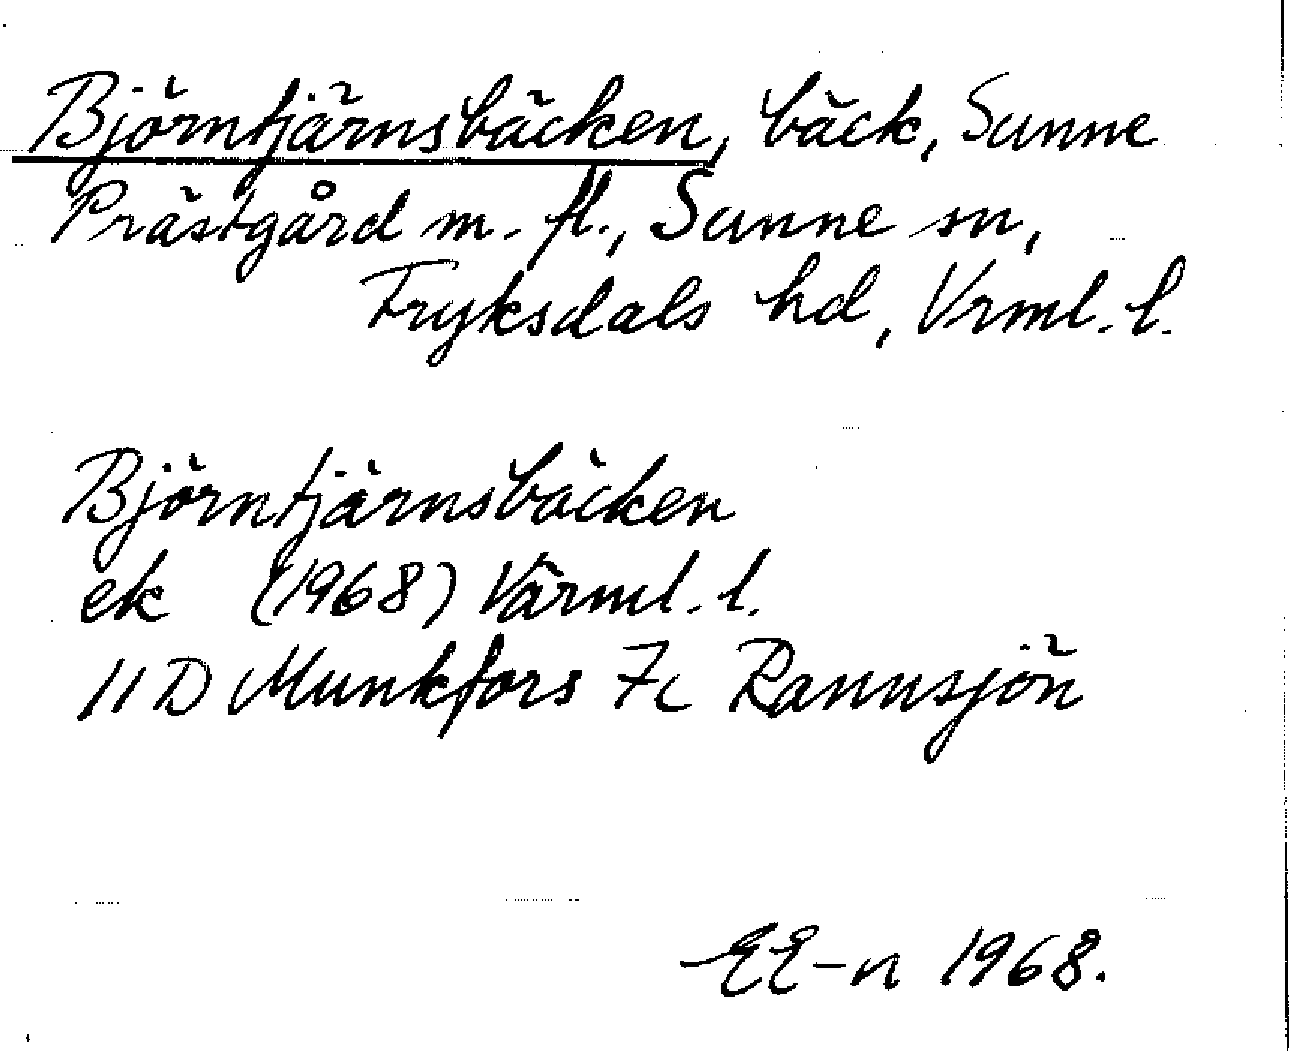 Björntjärnsbäcken, bäck, Sunne
Prästgård m. fl., Sunne sn,
Fryksdals hd, Vrml. l.
Björntjärnsbäcken
ek (1968) Värml. l.
11D Munkfors 7c Rannsjön
EE-n 1968.